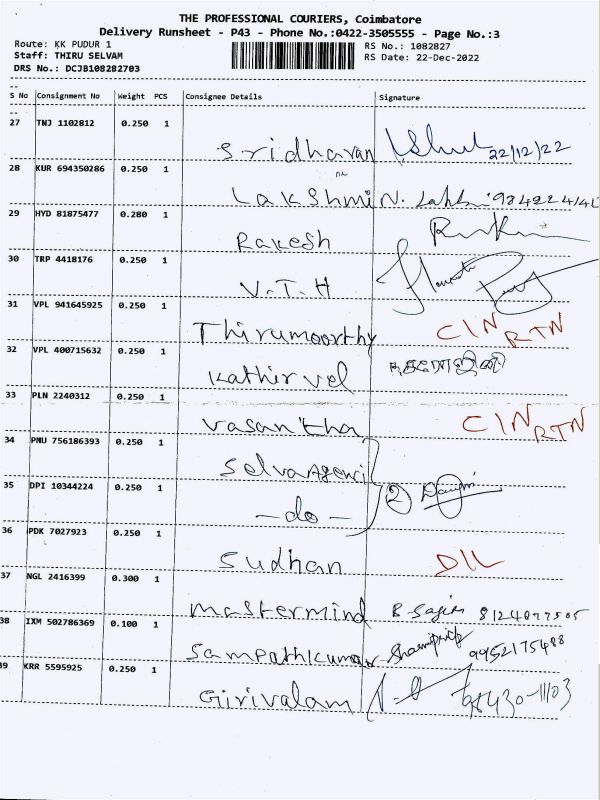 THE PROFESSIONAL COURIERS, Coimbatore
Delivery Runsheet - P43 - Phone No.:0422-3505555 - Page No.:3
Route: KK PUDUR 1 RS No.: 1082827
Staff: THIRU SELVAM RS Date: 22-Dec-2022
DRS No.: DCJB108282703
S No Consignment No Weight PCS Consignee Details Signature
27 TNJ 1102812 0.250 1 Sridharan 22/12/22
28 KUR 694350286 0.250 1 Lakshmi N.
29 HYD 81875477 0.280 1 Rakesh
30 TRP 4418176 0.250 1 V.T.H
31 VPL 941645925 0.250 1 Thirumoorthy CIN RTN
32 VPL 400715632 0.250 1 Kathirvel
33 PLN 2240312 0.250 1 Vasantha CIN RTN
34 PNU 756186393 0.250 1 Selva Agenci
35 DPI 10344224 0.250 1 - do - 2
36 PDK 7027923 0.250 1 Sudhan D/L
37 NGL 2416399 0.300 1 Mastermind
38 IXM 502786369 0.100 1 Sampathkumar 9952175488
39 KRR 5595925 0.250 1 Girivalam 98430-11103